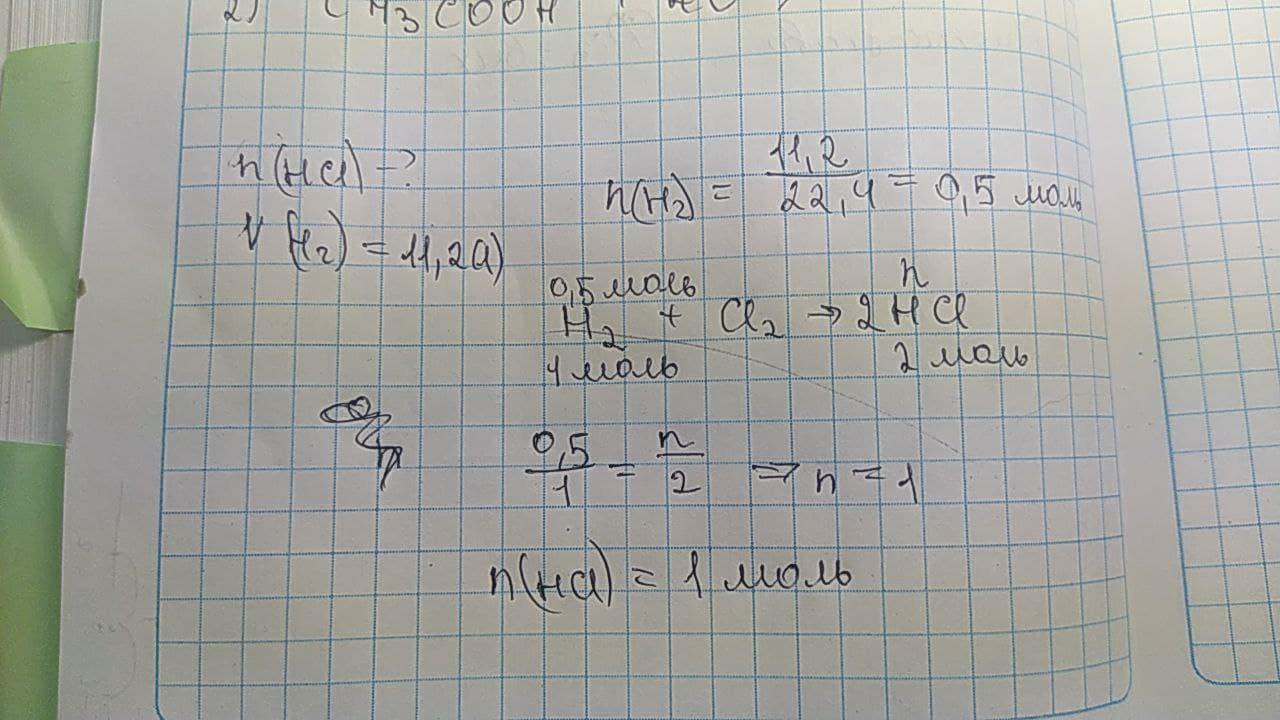 2) CH3COOH
n(HCl) - ?
n(H2) = 11,2/22,4 = 0,5 моль
V(H2) = 11,2л)
0,5 моль n
H2 + Cl2 → 2HCl
1 моль 2 моль
0,5/1 = n/2 ⇒ n = 1
n(HCl) = 1 моль